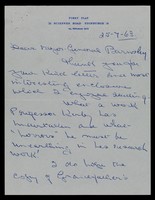 FIRST FLAT
15-7-63.
Dear Major General Barnsley
Thank you for
your kind letter and most
interesting enclosure
which I enjoyed reading.
What a work
Professor Wenley has
undertaken and what
horrors he must be
unearthing in his research
work!
I do hope the
Copy of Grandfather's